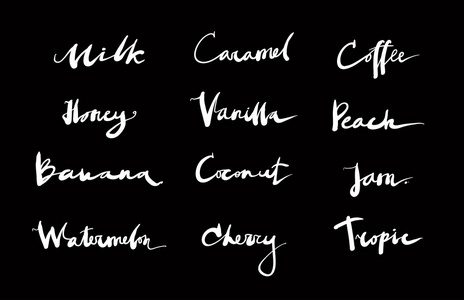 Milk Caramel Coffee
Honey Vanilla Peach
Banana Coconut Jam
Watermelon Cherry Tropic